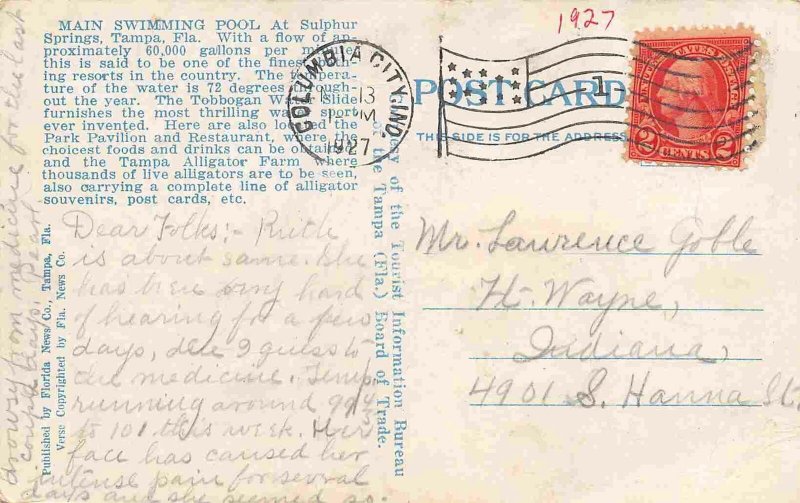 MAIN SWIMMING POOL At Sulphur
Springs, Tampa, Fla. With a flow of ap-
proximately 60,000 gallons per minute
this is said to be one of the finest bath-
ing resorts in the country. The tempera-
ture of the water is 72 degrees through-
out the year. The Tobbogan Water Slide
furnishes the most thrilling water sport
ever invented. Here are also located the
Park Pavilion and Restaurant, where the
choicest foods and drinks can be obtained
and the Tampa Alligator Farm where
thousands of live alligators are to be seen,
also carrying a complete line of alligator
souvenirs, post cards, etc.
1927
COLUMBIA CITY, IND.
13
M
1927
1
UNITED STATES POSTAGE
2 CENTS 2
POST CARD
THIS SIDE IS FOR THE ADDRESS
Published by Florida News Co., Tampa, Fla.
Verse Copyrighted by Fla. News Co.
Courtesy of the Tourist Information Bureau
of the Tampa (Fla.) Board of Trade.
Dear Folks:- Ruth
is about same. She
has been very hard
of hearing for a few
days, due I guess to
the medicine. Temp.
running around 99 4/5
to 101 this week. Her
face has caused her
intense pain for several
days and she seemed so
drowsy from medicine for the last
couple days. Pearl
Mr. Lawrence Goble
Ft. Wayne,
Indiana,
4901 S. Hanna St.